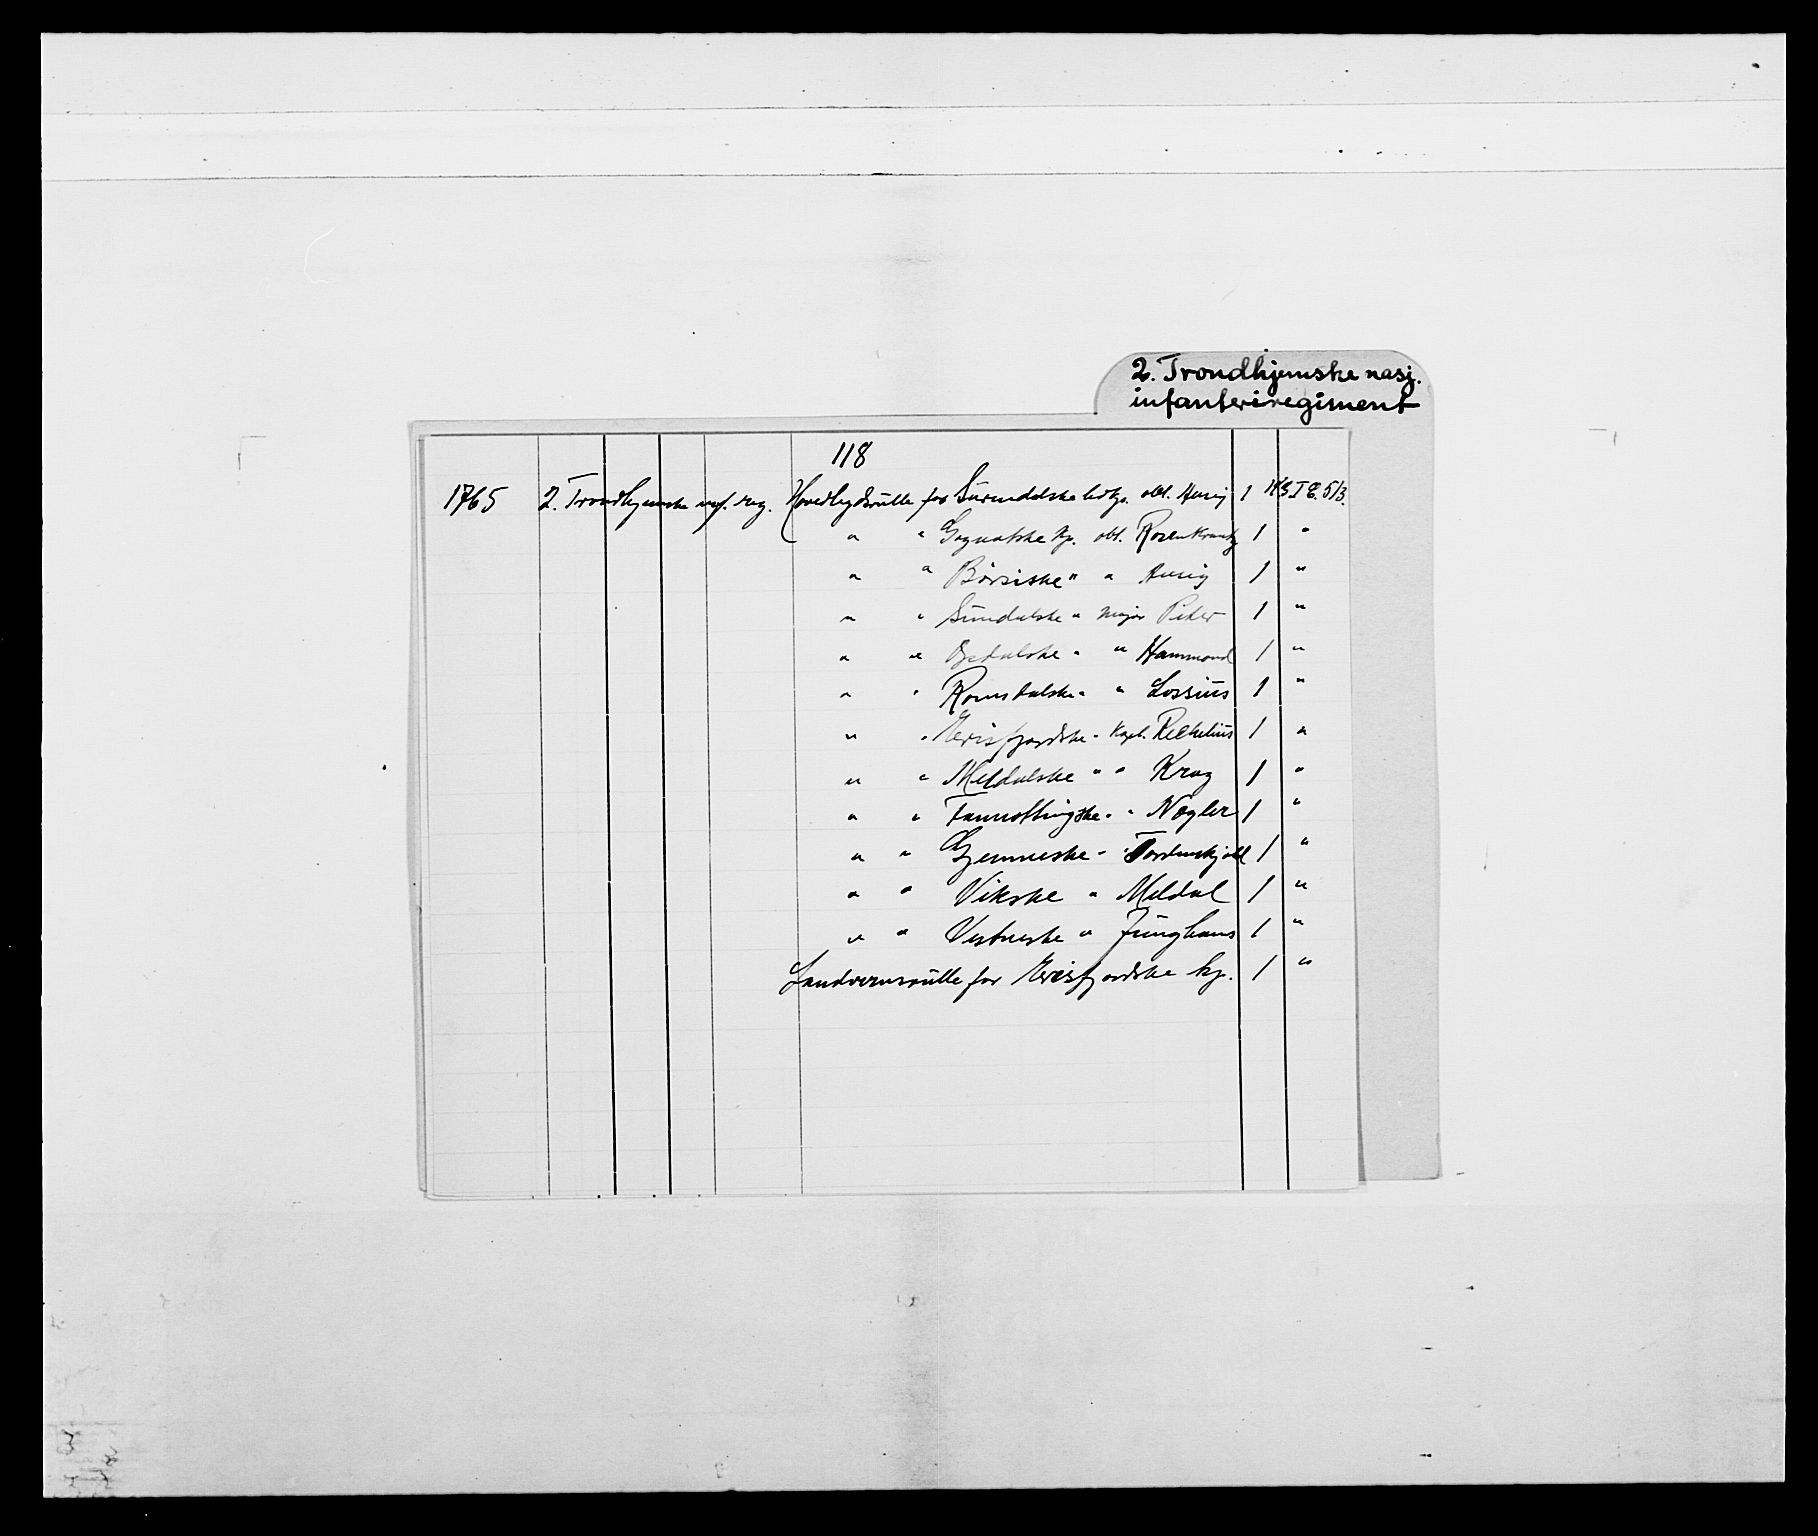 2. Trondhjemske nasj.
infanteriregiment
118
1765 2. Trondhjemske inf. reg. Hovedlydsrulle for Surendalske livkp. obl. Husig 1 HS I E. 5/3.
" " Sognatske kp. obl. Rosenkrantz 1 "
" " Børsiske " " Husig 1 "
" " Sundalske " major Peter 1 "
" " Opdalske " " Hammond 1 "
" " Romsdalske " " Lossius 1 "
" " Erisfjordske " kapt. Rechelius 1 "
" " Meldalske " " Krag 1 "
" " Fannottingske " " Nøgler 1 "
" " Gjemneske " " Tordenskjold 1 "
" " Vikske " Meldal 1 "
" " Vestneske " Junghans 1 "
Landvernsrulle for Erisfjordske kp. 1 "